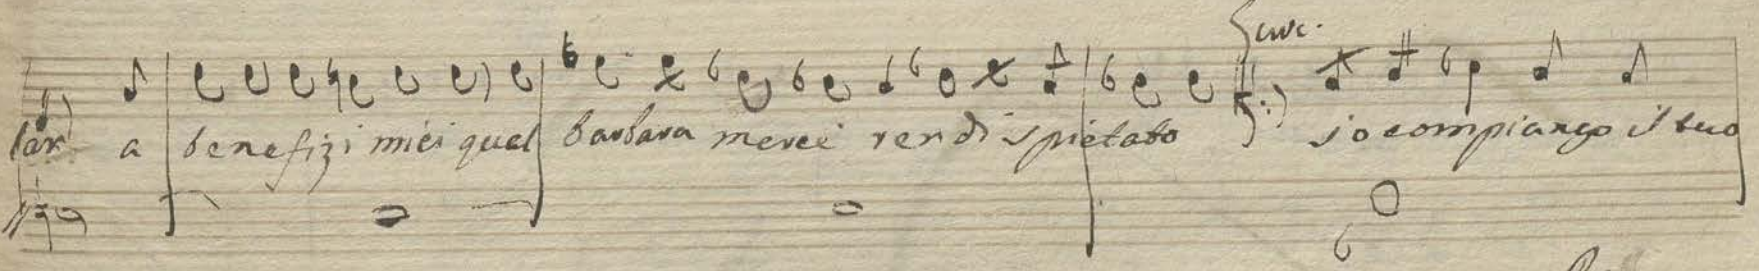 lar a benefizi miei qual barbara mercè rendi spietato io compiango il tuo